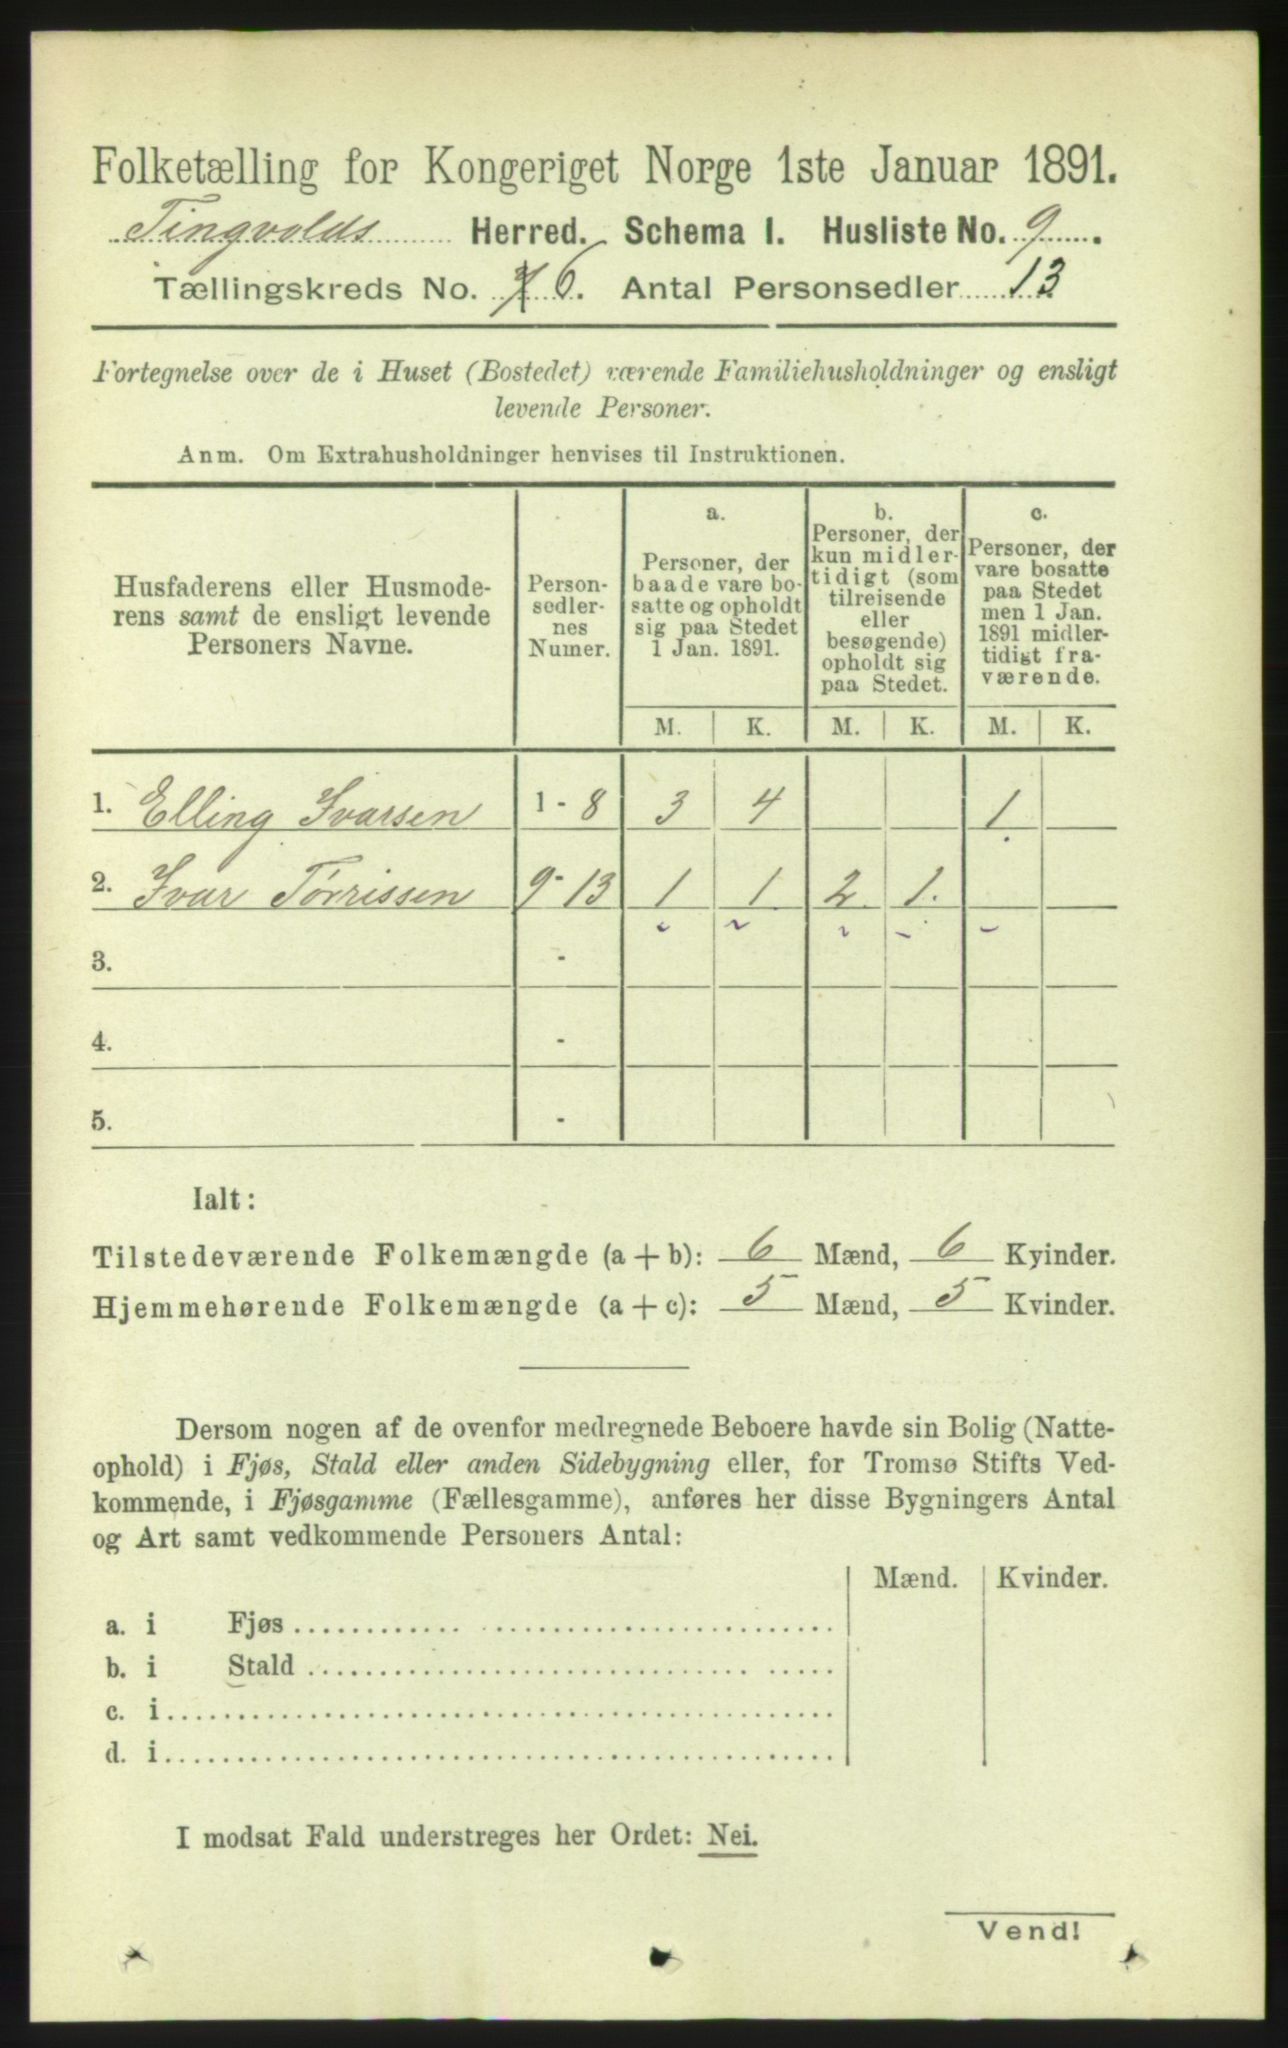 Folketælling for Kongeriget Norge 1ste Januar 1891.
Tingvolds Herred. Schema I. Husliste No. 9.
Tællingskreds No. 6. Antal Personsedler 13
Fortegnelse over de i Huset (Bostedet) værende Familiehusholdninger og ensligt
levende Personer.
Anm. Om Extrahusholdninger henvises til Instruktionen.
Husfaderens eller Husmode-
rens samt de ensligt levende
Personers Navne.
Person-
sedler-
nes
Numer.
a.
Personer, der
baade vare bo-
satte og opholdt
sig paa Stedet
1 Jan. 1891.
b.
Personer, der
kun midler-
tidigt (som
tilreisende
eller
besøgende)
opholdt sig
paa Stedet.
c.
Personer, der
vare bosatte
paa Stedet
men 1 Jan.
1891 midler-
tidigt fra-
værende.
M. K. M. K. M. K.
1. Elling Ivarsen 1 - 8 3 4 1
2. Ivar Tørrissen 9 - 13 1 1 2 1
3. -
4. -
5. -
Ialt:
Tilstedeværende Folkemængde (a + b): 6 Mænd, 6 Kvinder.
Hjemmehørende Folkemængde (a + c): 5 Mænd, 5 Kvinder.
Dersom nogen af de ovenfor medregnede Beboere havde sin Bolig (Natte-
ophold) i Fjøs, Stald eller anden Sidebygning eller, for Tromsø Stifts Ved-
kommende, i Fjøsgamme (Fællesgamme), anføres her disse Bygningers Antal
og Art samt vedkommende Personers Antal:
Mænd. Kvinder.
a. i Fjøs
b. i Stald
c. i
d. i
I modsat Fald understreges her Ordet: Nei.
Vend!